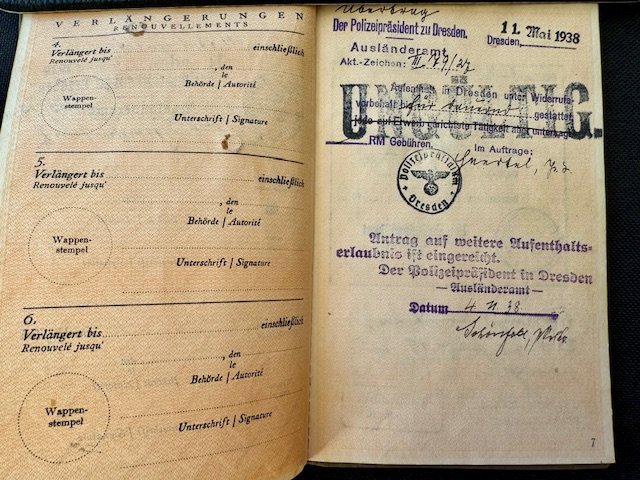 VERLÄNGERUNGEN
RENOUVELLEMENTS
4.
Verlängert bis
einschließlich
Renouvelé jusqu'
, den
le
Behörde / Autorité
Wappen-
stempel
Unterschrift / Signature
5.
Verlängert bis
einschließlich
Renouvelé jusqu'
, den
le
Behörde / Autorité
Wappen-
stempel
Unterschrift / Signature
6.
Verlängert bis
einschließlich
Renouvelé jusqu'
, den
le
Behörde / Autorité
Wappen-
stempel
Unterschrift / Signature
Übertrag
Der Polizeipräsident zu Dresden.
11. Mai 1938
Dresden,
Ausländeramt
Akt.-Zeichen: III
Aufenthalt in Dresden unter Widerrufs-
vorbehalt bis für dauernd gestattet,
jede auf Erwerb gerichtete Tätigkeit aber untersagt.
UNGÜLTIG.
RM Gebühren.
Im Auftrage:
Polizeipräsidium
Dresden
Antrag auf weitere Aufenthalts-
erlaubnis ist eingereicht.
Der Polizeipräsident in Dresden
— Ausländeramt —
Datum 4. 11. 38.
7